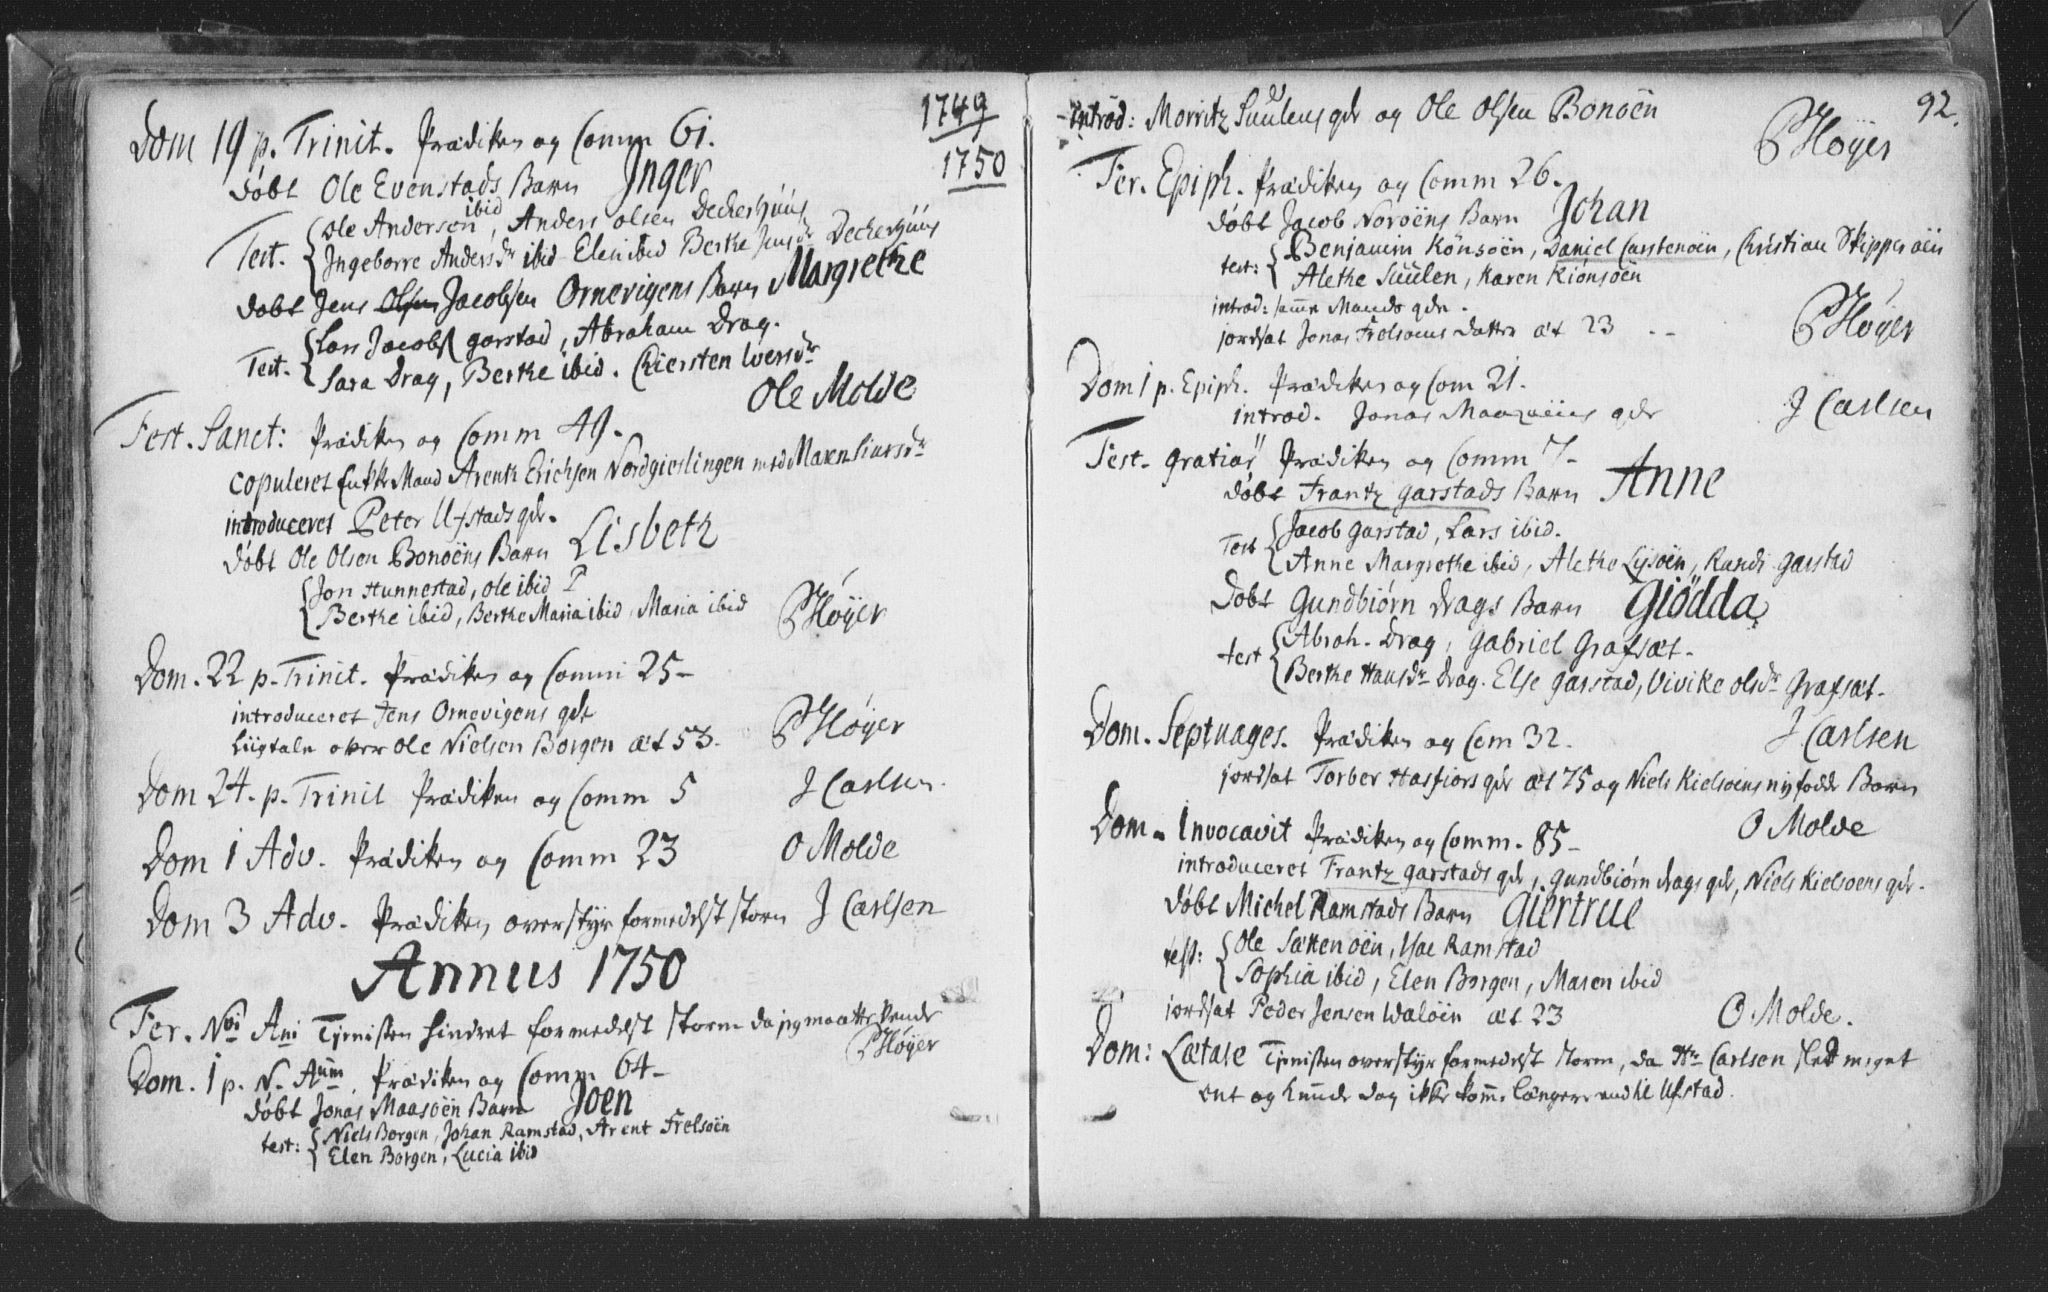 1749
1750
Dom 19 p. Trinit. Prædiken og Comm 61.
døbt Ole Evenstads Barn Inger
Test. Ole Andersen ibid, Anders olsen Deckerhuus
Ingeborre Andersdr ibid Elen ibid Berthe Jensdr Deckerhuus
døbt Jens Olsen Jacobsen Ornevigens Barn Margrethe
Test. Lars Jacobs garstad, Abraham Drag.
Sara Drag, Berthe ibid. Chiersten Iversdr
Ole Molde
Fest. Sanct: Prædiken og Comm 49.
copuleret Enkke Mand Arentz Erichsen Nordgieslingen med Maren Siursdr
introduceret Peter Ufstads qde.
døbt Ole Olsen Bonøens Barn Lisbeth
Jon Hunnestad, ole ibid
Berthe ibid, Berthe Maria ibid, Maria ibid
PHøyer
Dom. 22 p. Trinit. Prædiken og Comm 25
introduceret Jens Ornevigens qde
Liigtale over Ole Nielsen Borgen æt 53.
PHøyer
Dom 24. p. Trinit Prædiken og Comm 5 J Carlsen.
Dom 1 Adv. Prædiken og Comm 23 O Molde
Dom 3 Adv. Prædiken overstyr formedelst storm J Carlsen
Annus 1750
Fer. Nvi Ani Tjenisten hindret formedelst storm da jeg maatte vende
PHøyer
Dom. 1 p. N. Aum. Prædiken og Comm 64
døbt Jonas Maasøen Barn Joen
test: Niels Borgen, Johan Ramstad, Arent Frelsøen
Elen Borgen, Lucia ibid
92.
introd: Morritz Suulens qde og Ole Olsen Bonøen
PHøyer
Fer. Epiph. Prædiken og Comm 26.
døbt Jacob Norøens Barn Johan
test: Benjamin Kønsøen, Daniel Carstenøen, Christian Skipperøen
Alethe Suulen, Karen Kiønsøen
introd: samme Mands qde.
jordsat Jonas Frelsøens datter æt 23
PHøyer
Dom 1 p. Epiph. Prædiken og Com 21.
introd. Jonas Maasøens qde
J Carlsen
Fest. gratiar Prædiken og Comm 7
døbt Frantz garstads Barn Anne
Test Jacob Garstad, Lars ibid.
Anne Margrethe ibid, Alethe Lysøen, Randi garstad
Døbt Gundbiørn Drags Barn Giødda
test Abrah. Drag, Gabriel Grafsæt.
Berthe Hansdr Drag. Else garstad, Vivike olsdr Grafsæt.
Dom. Septuages. Prædiken og Com 32. J Carlsen
jordsat Torber Hasfiors qde æt 75 og Niels Kielsøens nyfødde Barn
Dom. Invocavit Prædiken og Comm. 85 O Molde
introduceret Frantz garstads qde, gundbiørn drags qde, Niels Kielsøens qde.
døbt Michel Ramstads Barn Giertrue
test: Ole Sættenøen, Isac Ramstad
Sophia ibid, Elen Borgen, Maren ibid
jordsat Peder Jensen Waløen æt 23 O Molde.
Dom: Lætare Tjenisten overstyr formedelst storm, da Hr Carlsen sled meget
ent og kunde dog ikke komme længere end til Ufstad.